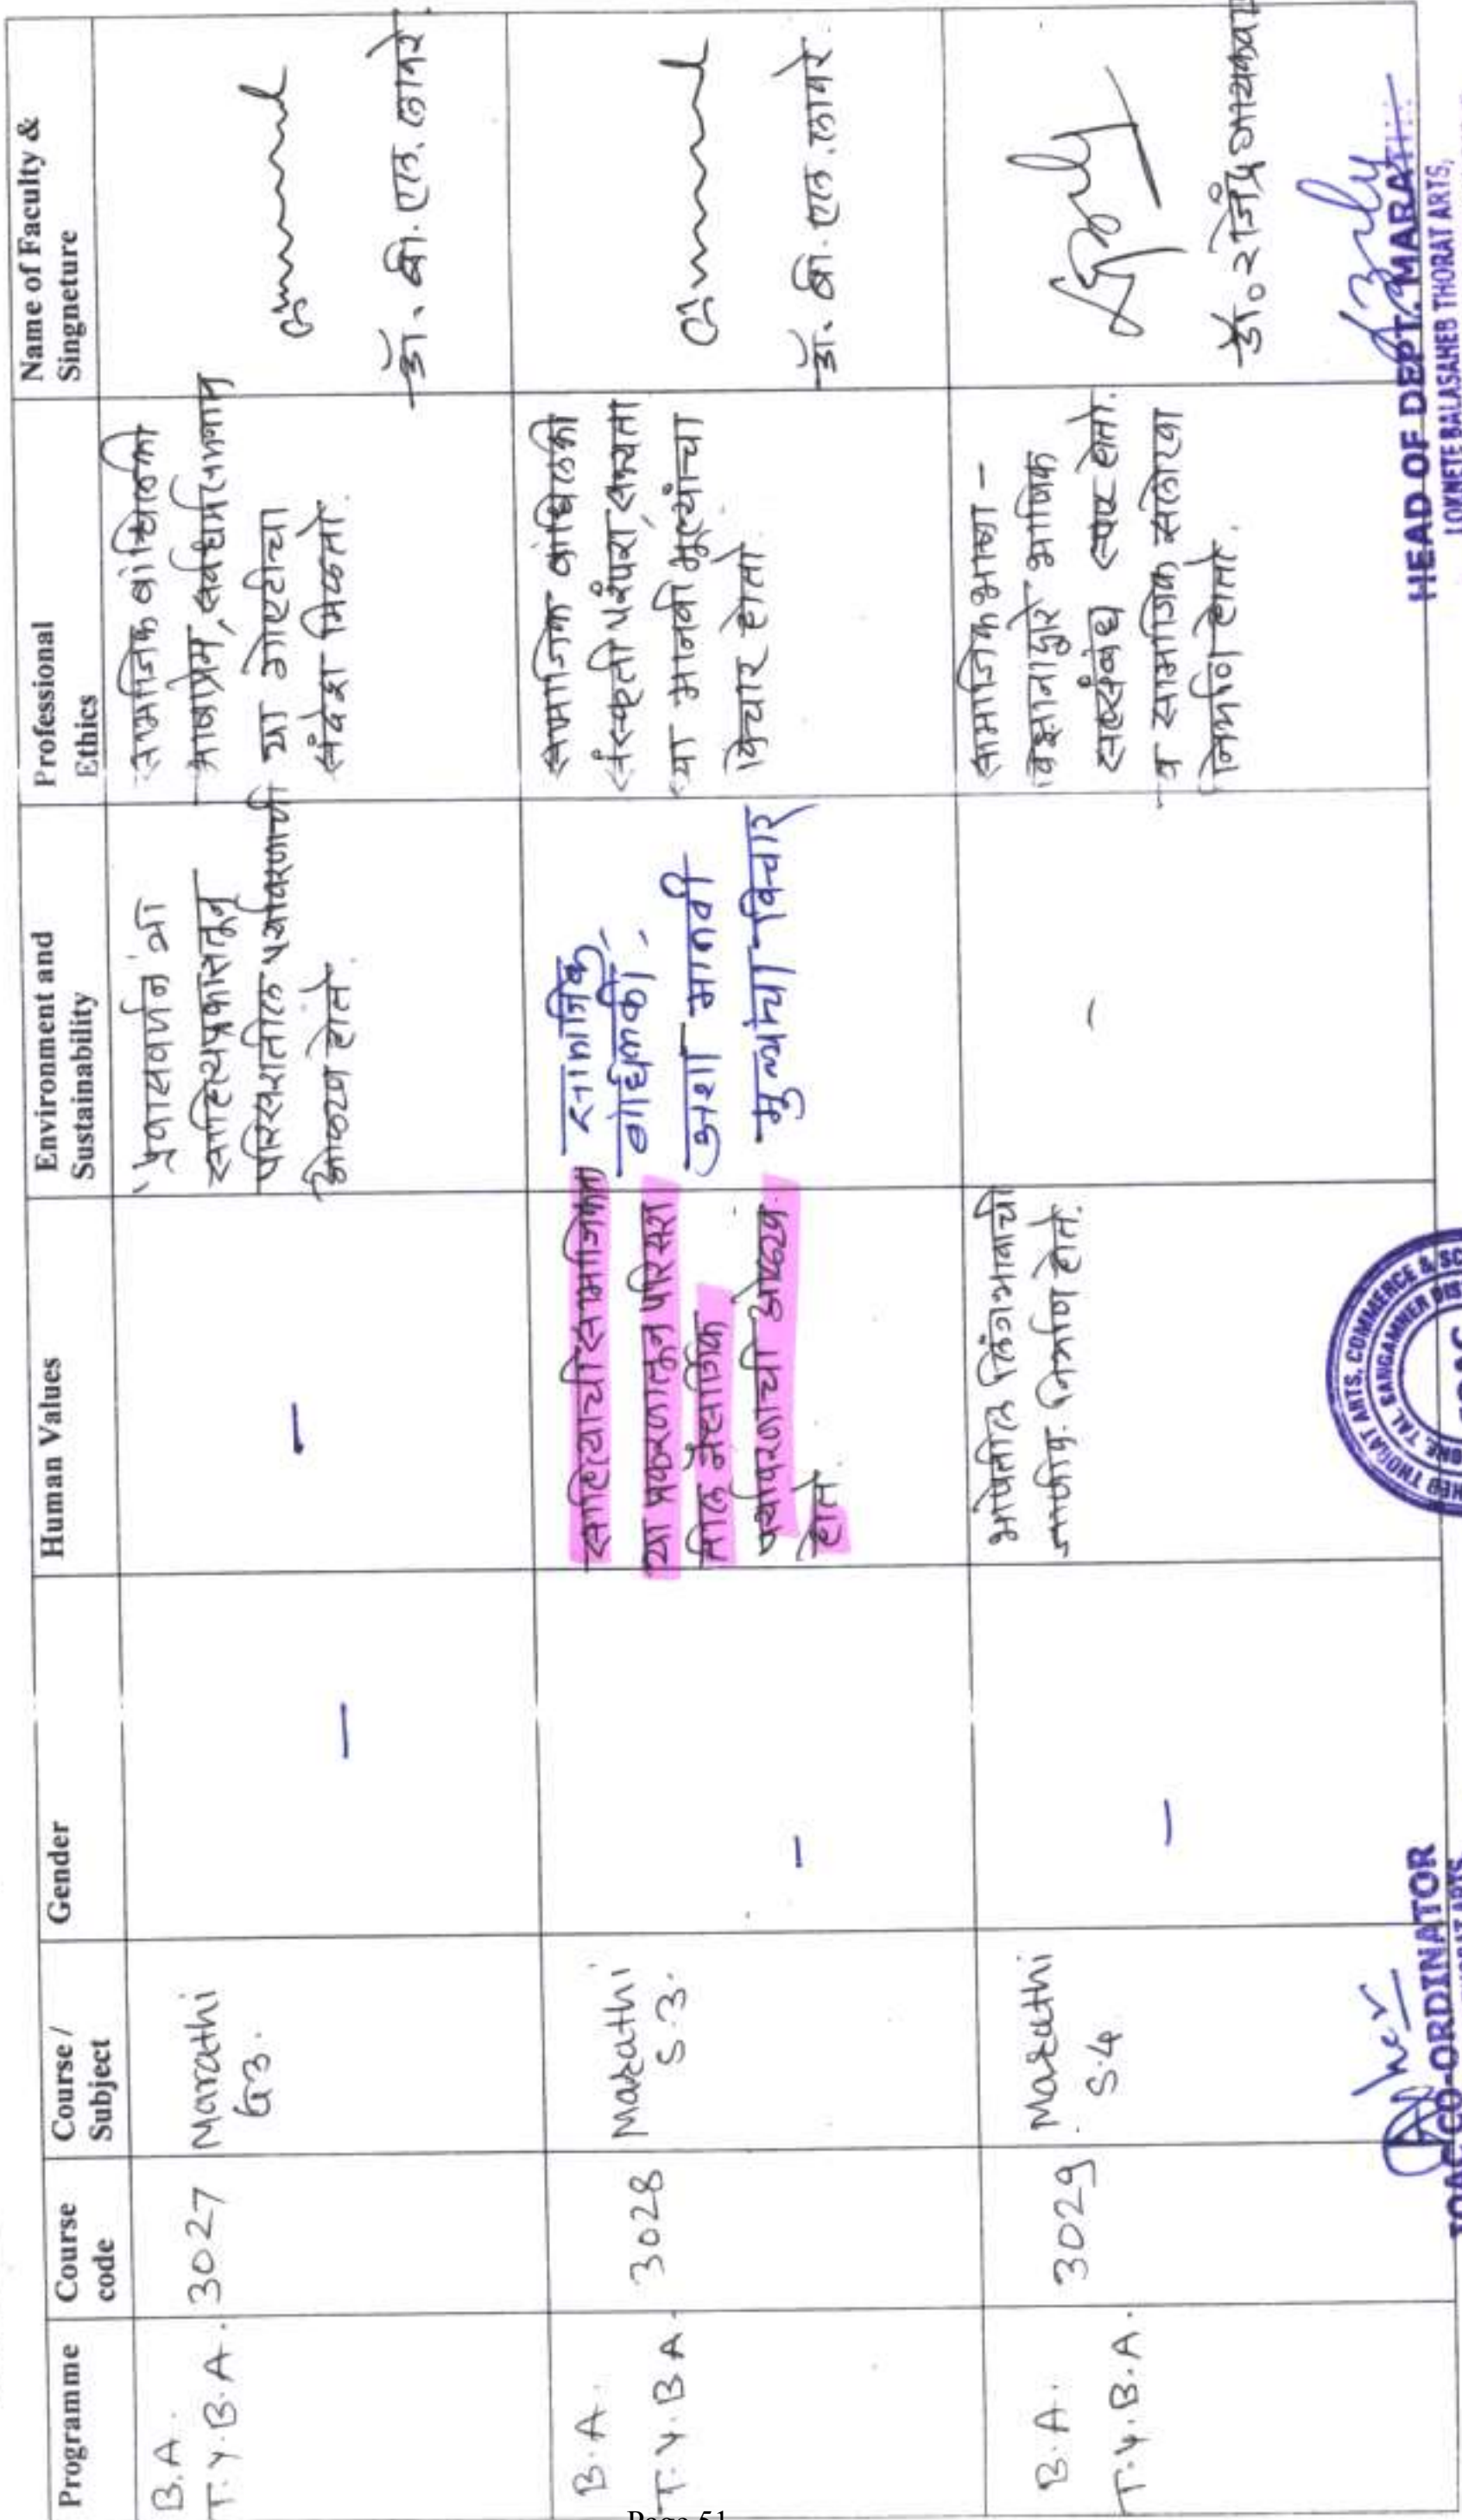 Programme
Course
code
Course /
Subject
Gender
Human Values
Environment and
Sustainability
Professional
Ethics
Name of Faculty &
Singneture
B.A.
T.Y.B.A.
3027
Marathi
G3.
—
—
'प्रवासवर्णन' या
साहित्यप्रकारातून
परिसरातील पर्यावरणाची
ओळख होते.
सामाजिक बांधिलकी
भाषाप्रेम, सर्वधर्मसमभाव
या गोष्टींचा
संदेश मिळतो.
डॉ. बी. एल.
B.A.
T.Y.BA.
3028
Marathi
S.3.
-
साहित्याची सामाजिकता
या प्रकरणातून परिसरा
तील नैसर्गिक
पर्यावरणाची ओळख
होते.
सामाजिक
बांधिलकी,
अशा मानवी
मुल्यांचा विचार
सामाजिक बांधिलकी
संस्कृती परंपरा, सभ्यता
या मानवी मूल्यांचा
विचार होतो.
डॉ. बी. एल.
B.A.
T.Y.B.A.
3029
Marathi
S.4
—
भाषेतील लिंगभावाची
जाणीव निर्माण होते.
-
सामाजिक भाषा -
विज्ञानाद्वारे भाषिक
सहसंबंध स्पष्ट होतो.
व सामाजिक सलोखा
निर्माण होतो.
डॉ.
CO-ORDINATOR
THORAT ARTS, COMMERCE &
TAL SANGAMNER
HEAD OF DEPT. MARATHI
LOKNETE BALASAHEB THORAT ARTS,
Page 51